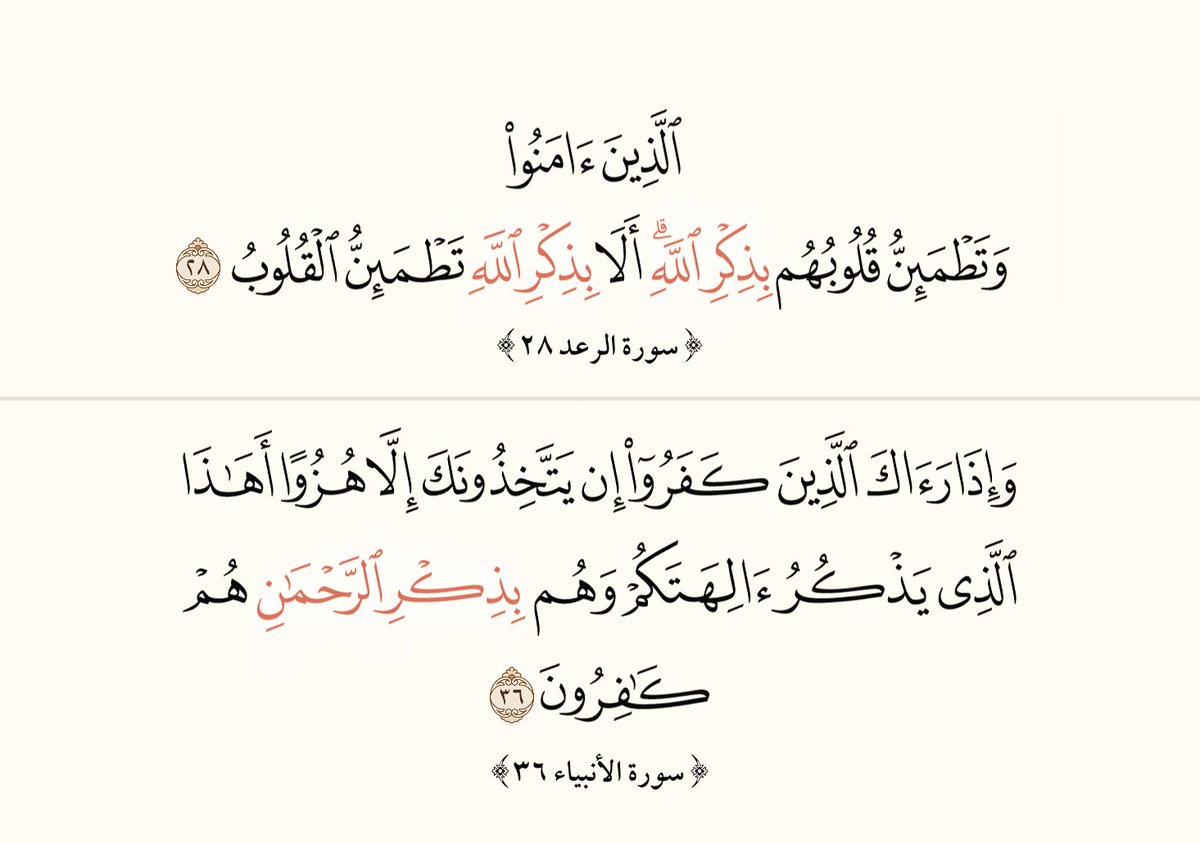 ٱلَّذِينَ ءَامَنُوا۟
وَتَطْمَئِنُّ قُلُوبُهُم بِذِكْرِ ٱللَّهِ ۗ أَلَا بِذِكْرِ ٱللَّهِ تَطْمَئِنُّ ٱلْقُلُوبُ ٢٨
﴿ سورة الرعد ٢٨ ﴾
وَإِذَا رَءَاكَ ٱلَّذِينَ كَفَرُوٓا۟ إِن يَتَّخِذُونَكَ إِلَّا هُزُوًا أَهَـٰذَا
ٱلَّذِى يَذْكُرُ ءَالِهَتَكُمْ وَهُم بِذِكْرِ ٱلرَّحْمَـٰنِ هُمْ
كَـٰفِرُونَ ٣٦
﴿ سورة الأنبياء ٣٦ ﴾